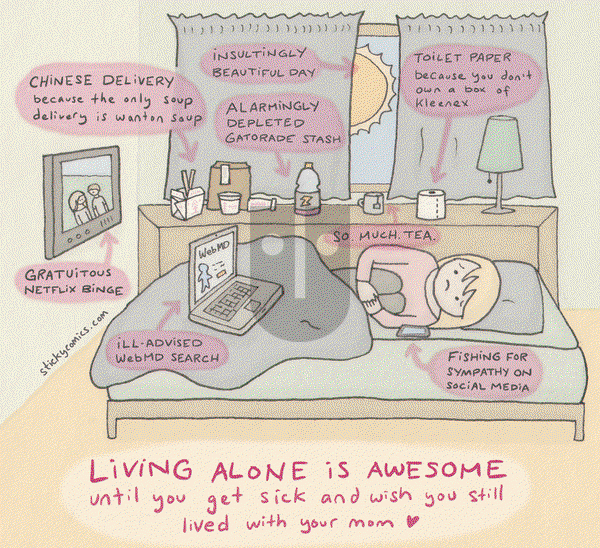 INSULTINGLY
BEAUTIFUL DAY
TOILET PAPER
because you don't
own a box of
Kleenex
CHINESE DELIVERY
because the only soup
delivery is wanton soup
ALARMINGLY
DEPLETED
GATORADE STASH
SO. MUCH. TEA.
WebMD
GRATUITOUS
NETFLIX BINGE
stickycomics.com
ILL-ADVISED
WebMD SEARCH
FISHING FOR
SYMPATHY ON
SOCIAL MEDIA
LiViNG ALONE iS AWESOME
until you get sick and wish you still
lived with your mom ♥